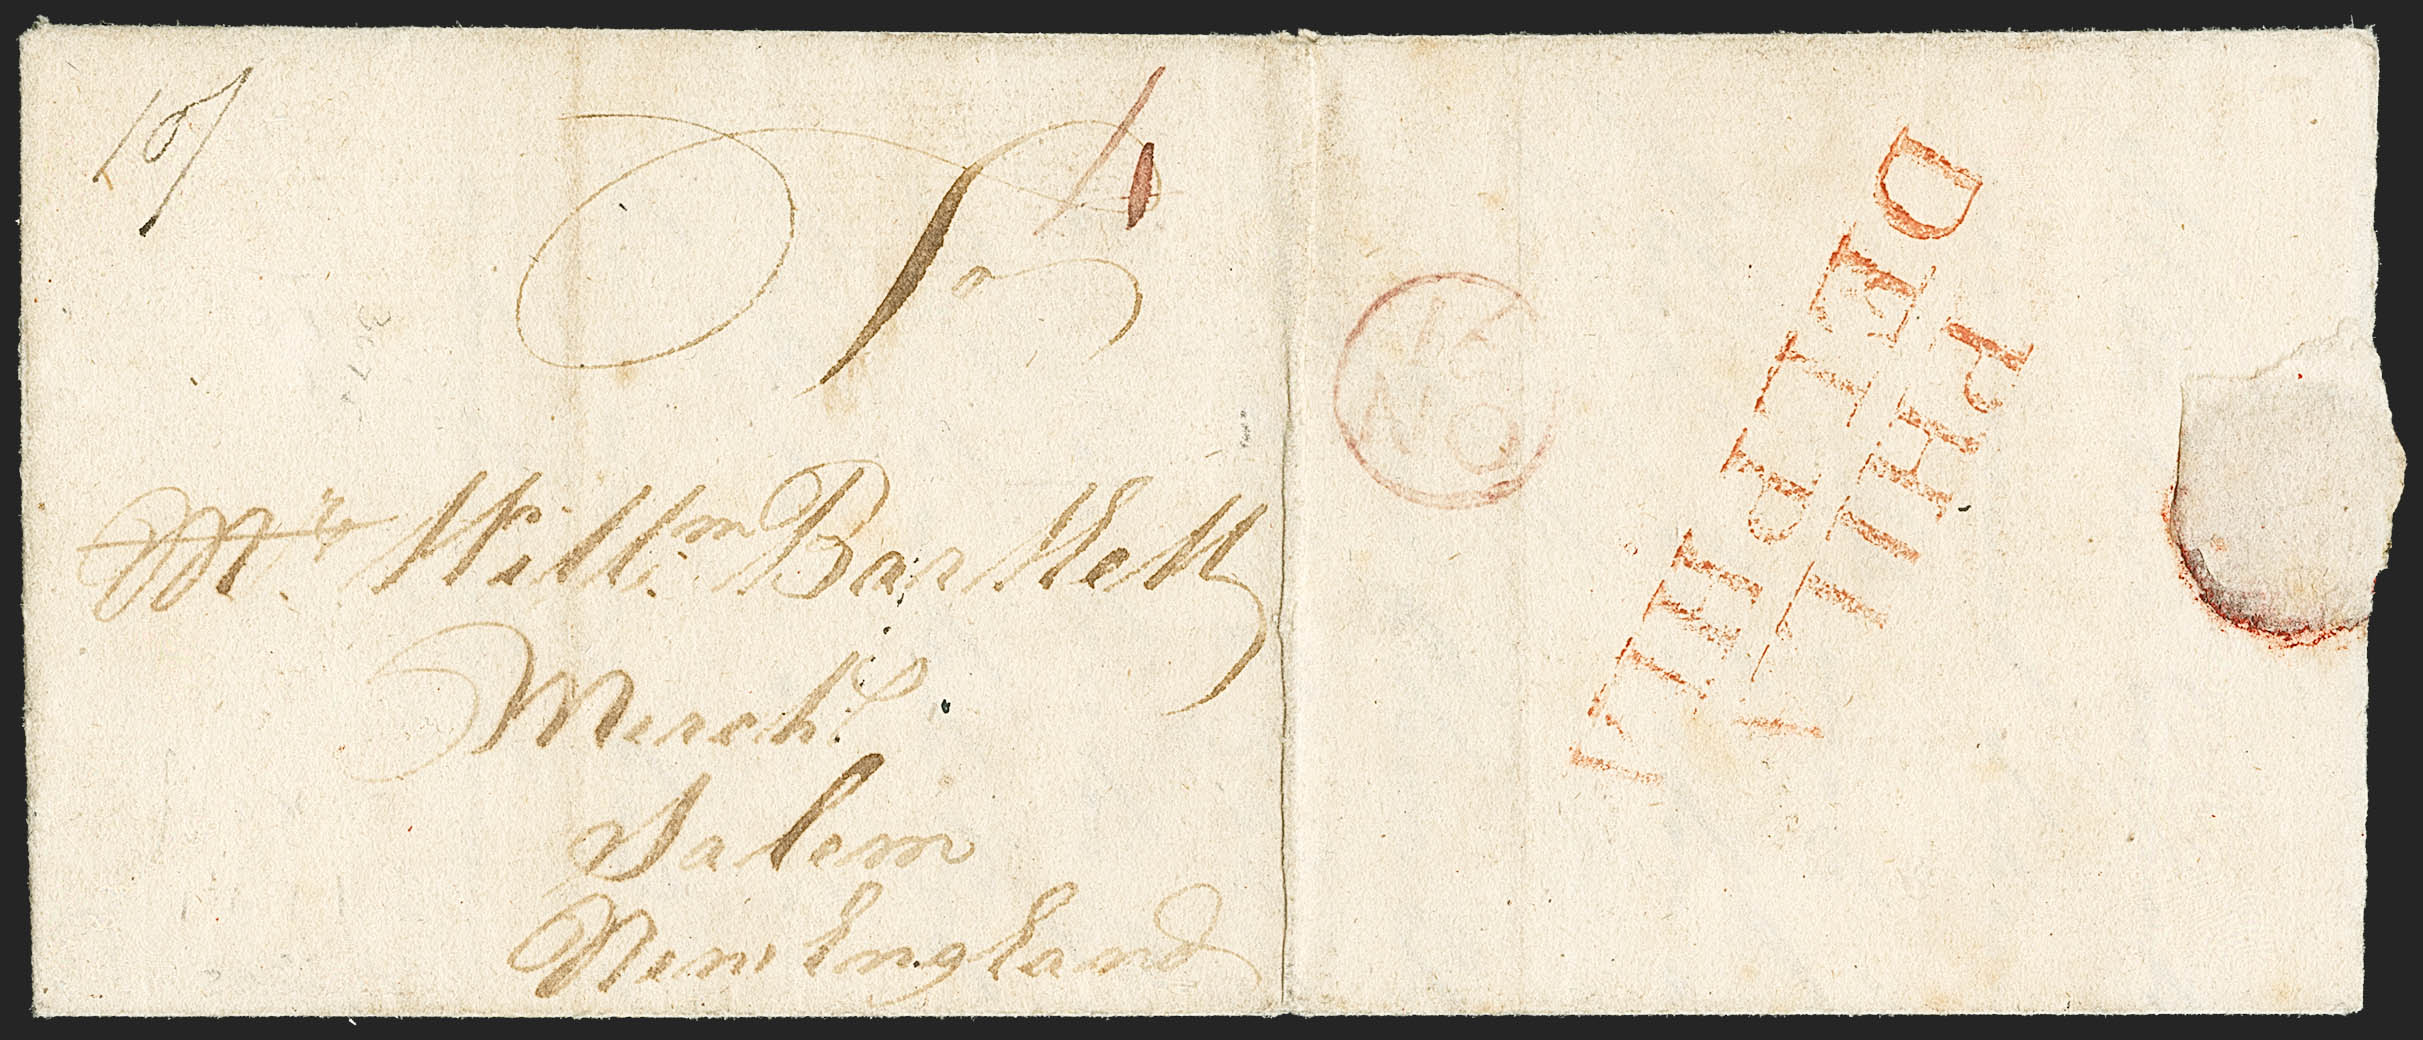 To
Mr. Willm Bartlett
Mercht
Salem
New England
NO
PHILA
DELPHIA